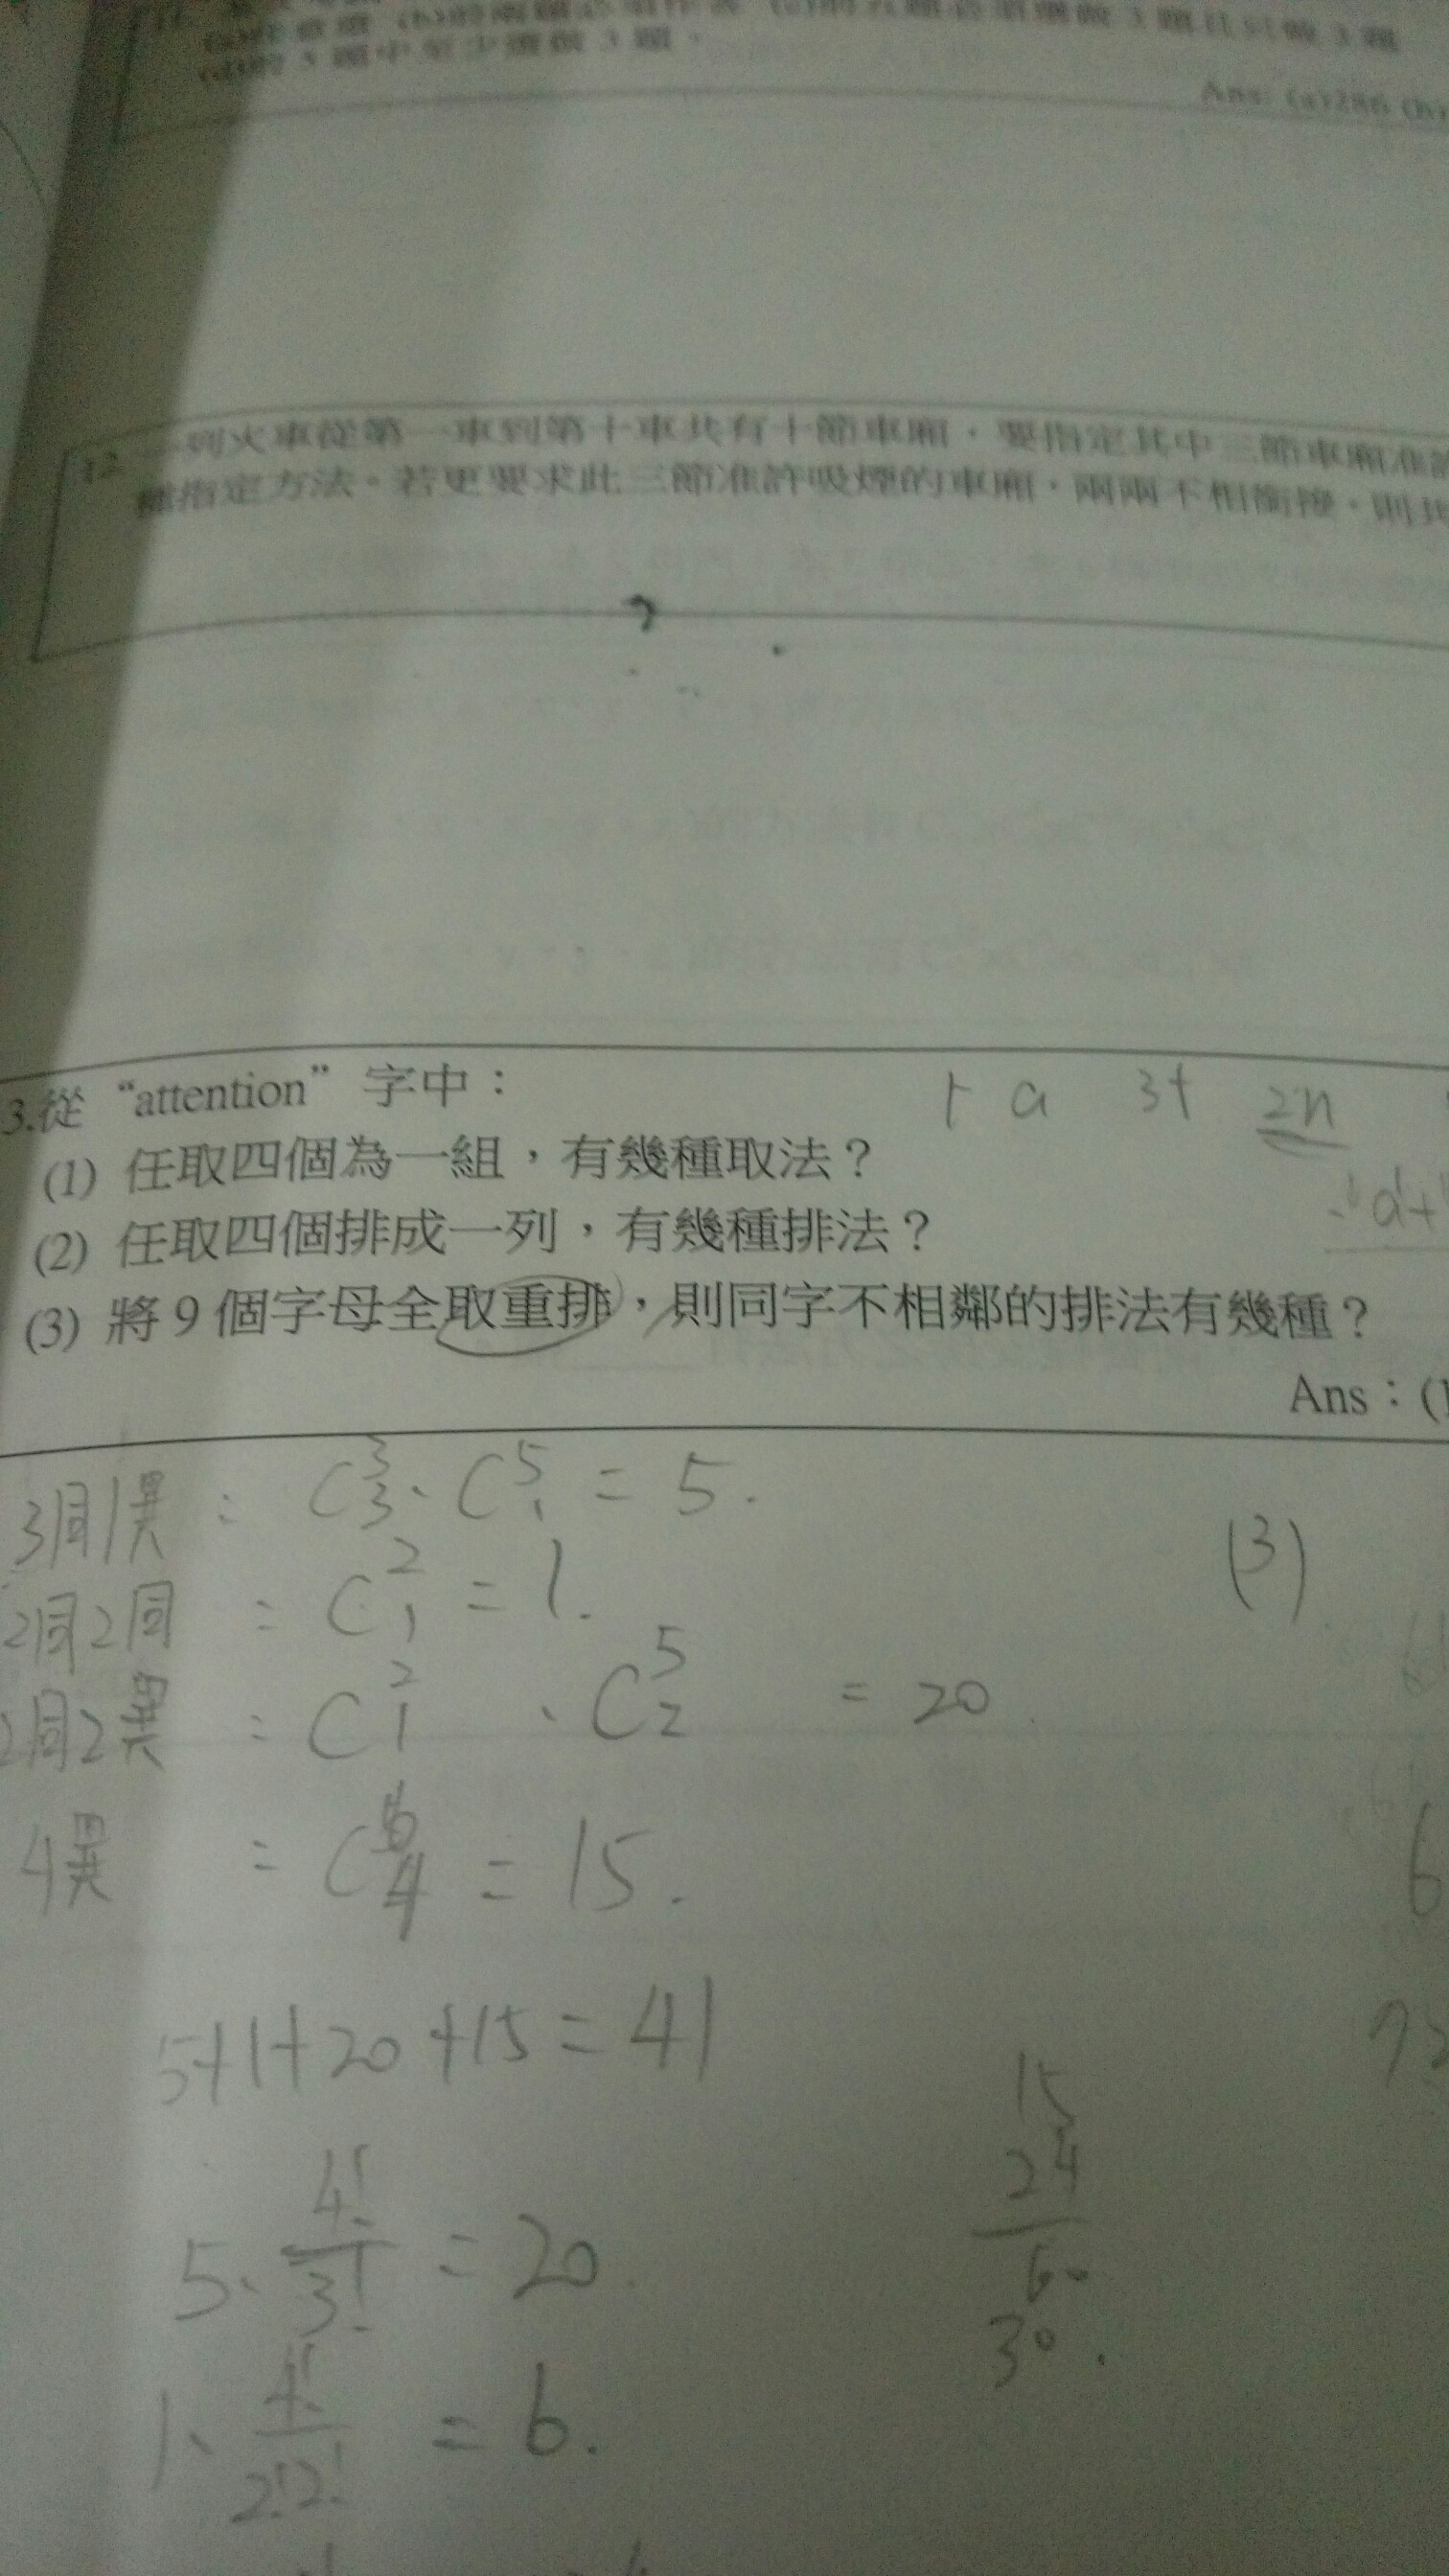 (d)前5題中至少選做3題。
Ans: (a)286 (b)
12. 一列火車從第一車到第十車共有十節車廂，要指定其中三節車廂准許
種指定方法。若更要求此三節准許吸煙的車廂，兩兩不相銜接，則共
3.從 “attention” 字中：
a 3t 2n
(1) 任取四個為一組，有幾種取法？
(2) 任取四個排成一列，有幾種排法？
(3) 將 9 個字母全取重排，則同字不相鄰的排法有幾種？
Ans：(1
3同1異 : C³₃ · C⁵₁ = 5.
(3)
2同2同 : C²₁ = 1.
2同2異 : C²₁ · C⁵₂ = 20
4異 : C⁶₄ = 15.
6
5+1+20+15=41
15
24
60
30.
5. 4!/3! = 20.
1. 4!/2!2! = 6.